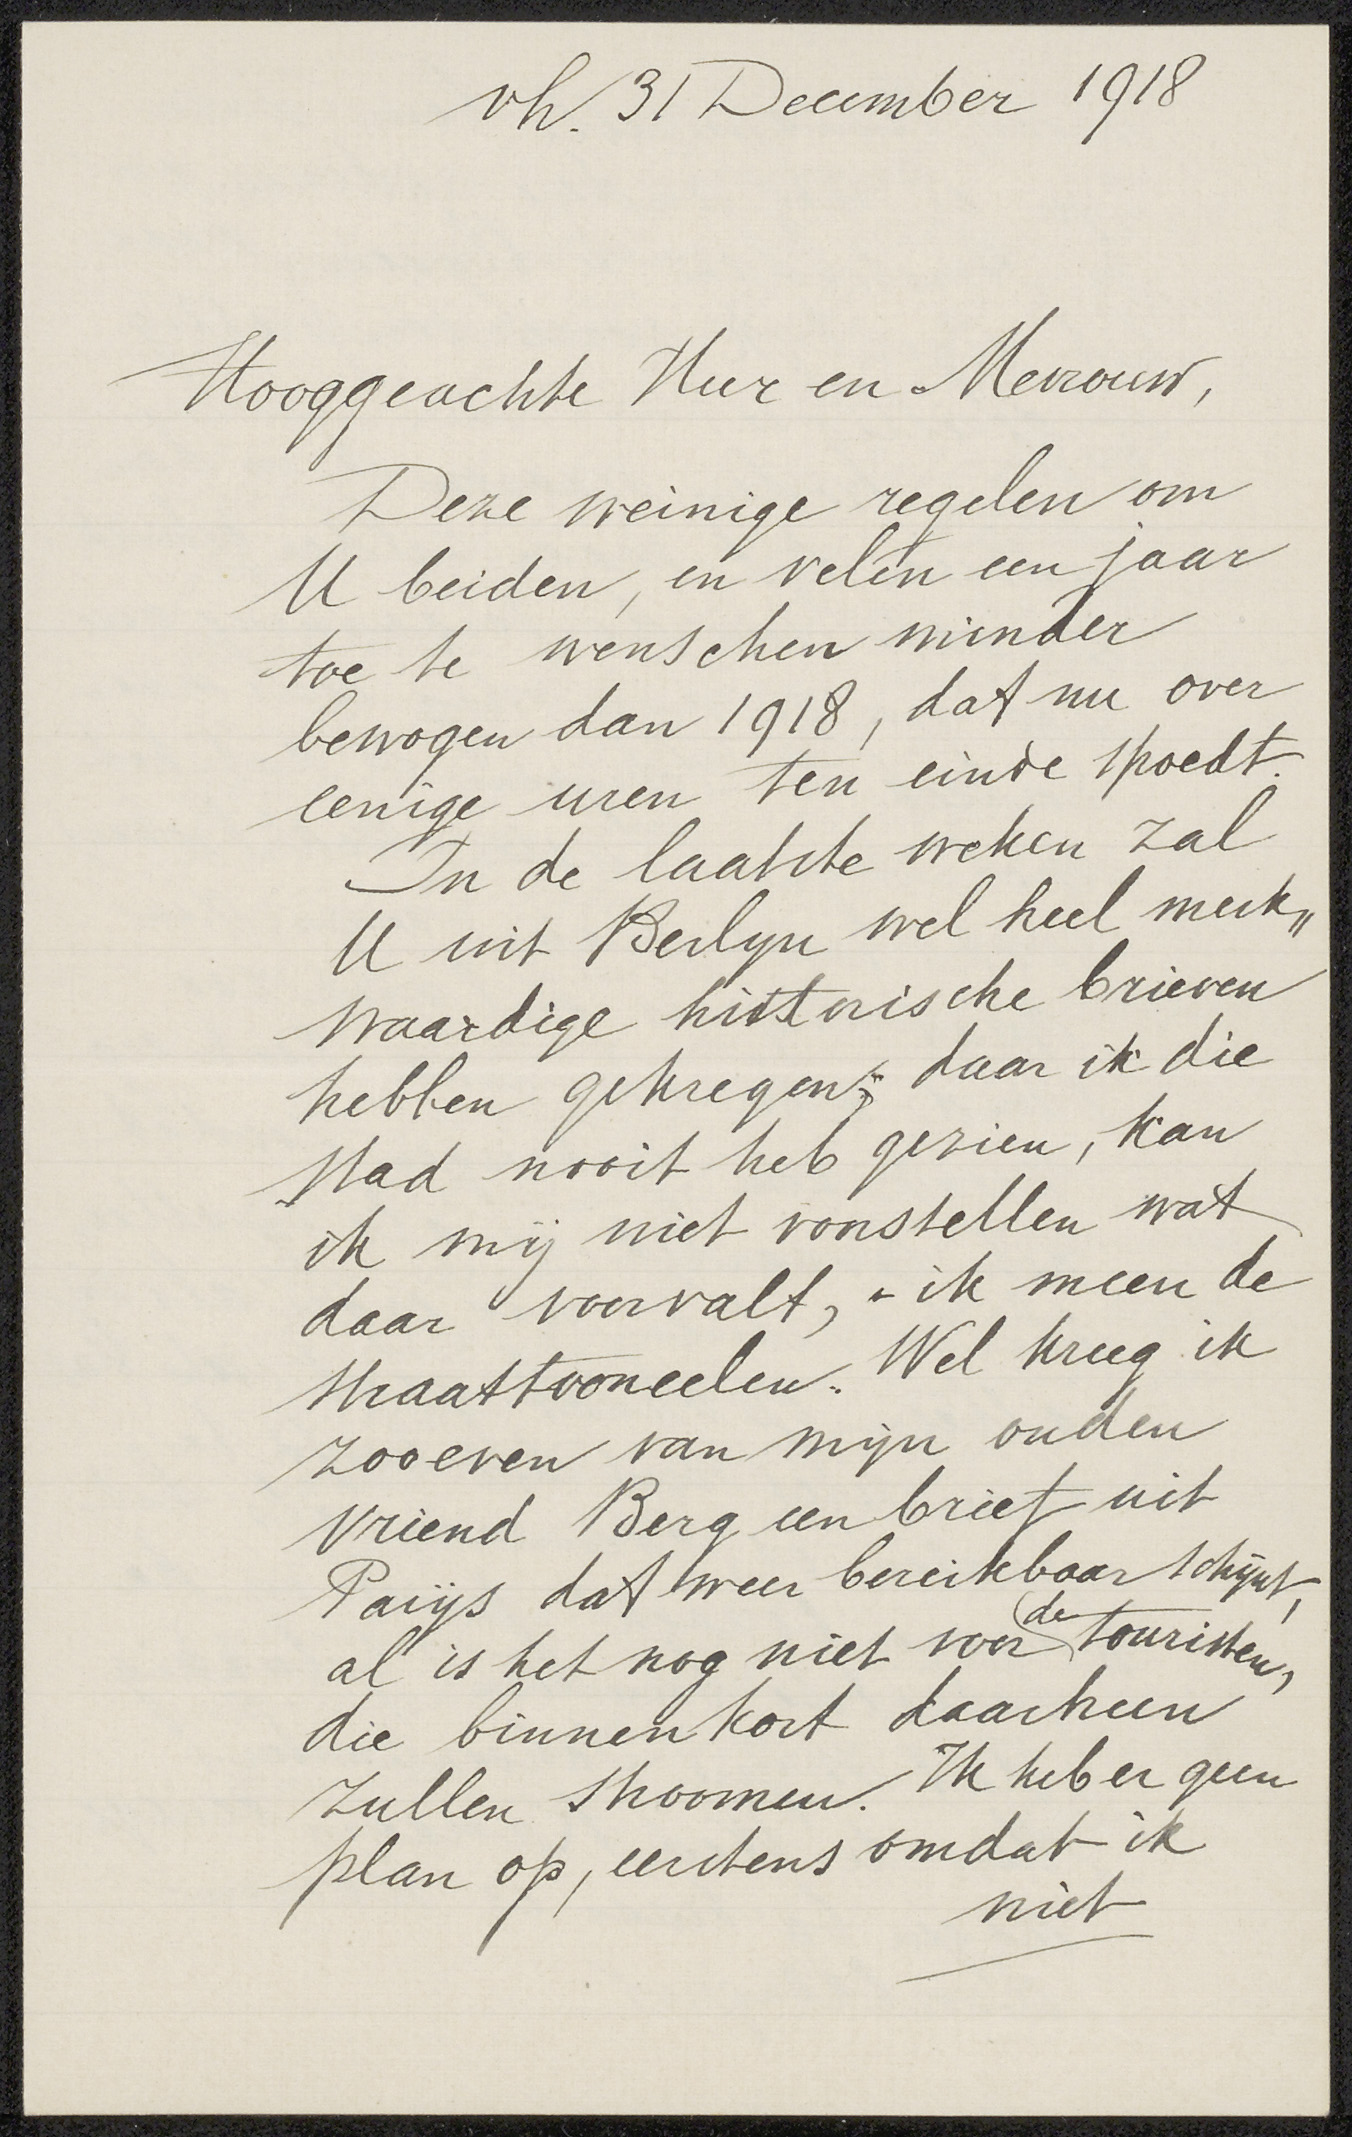 vh. 31 December 1918
Hooggeachte Heer en Mevrouw,
Deze weinige regelen om
U beiden, en velen een jaar
toe te wenschen minder
bewogen dan 1918, dat nu over
eenige uren ten einde spoedt.
In de laatste weken zal
U uit Berlyn wel heel merk„
waardige historische brieven
hebben gekregen; daar ik die
stad nooit heb gezien, kan
ik mij niet voorstellen wat
daar voorvalt, - ik meen de
straattooneelen. Wel kreeg ik
zooeven van mijn ouden
vriend Berg een brief uit
Parijs dat weer bereikbaar schijnt,
al is het nog niet voor de touristen,
die binnenkort daarheen
zullen stroomen. Ik heb er geen
plan op, eerstens omdat ik
niet